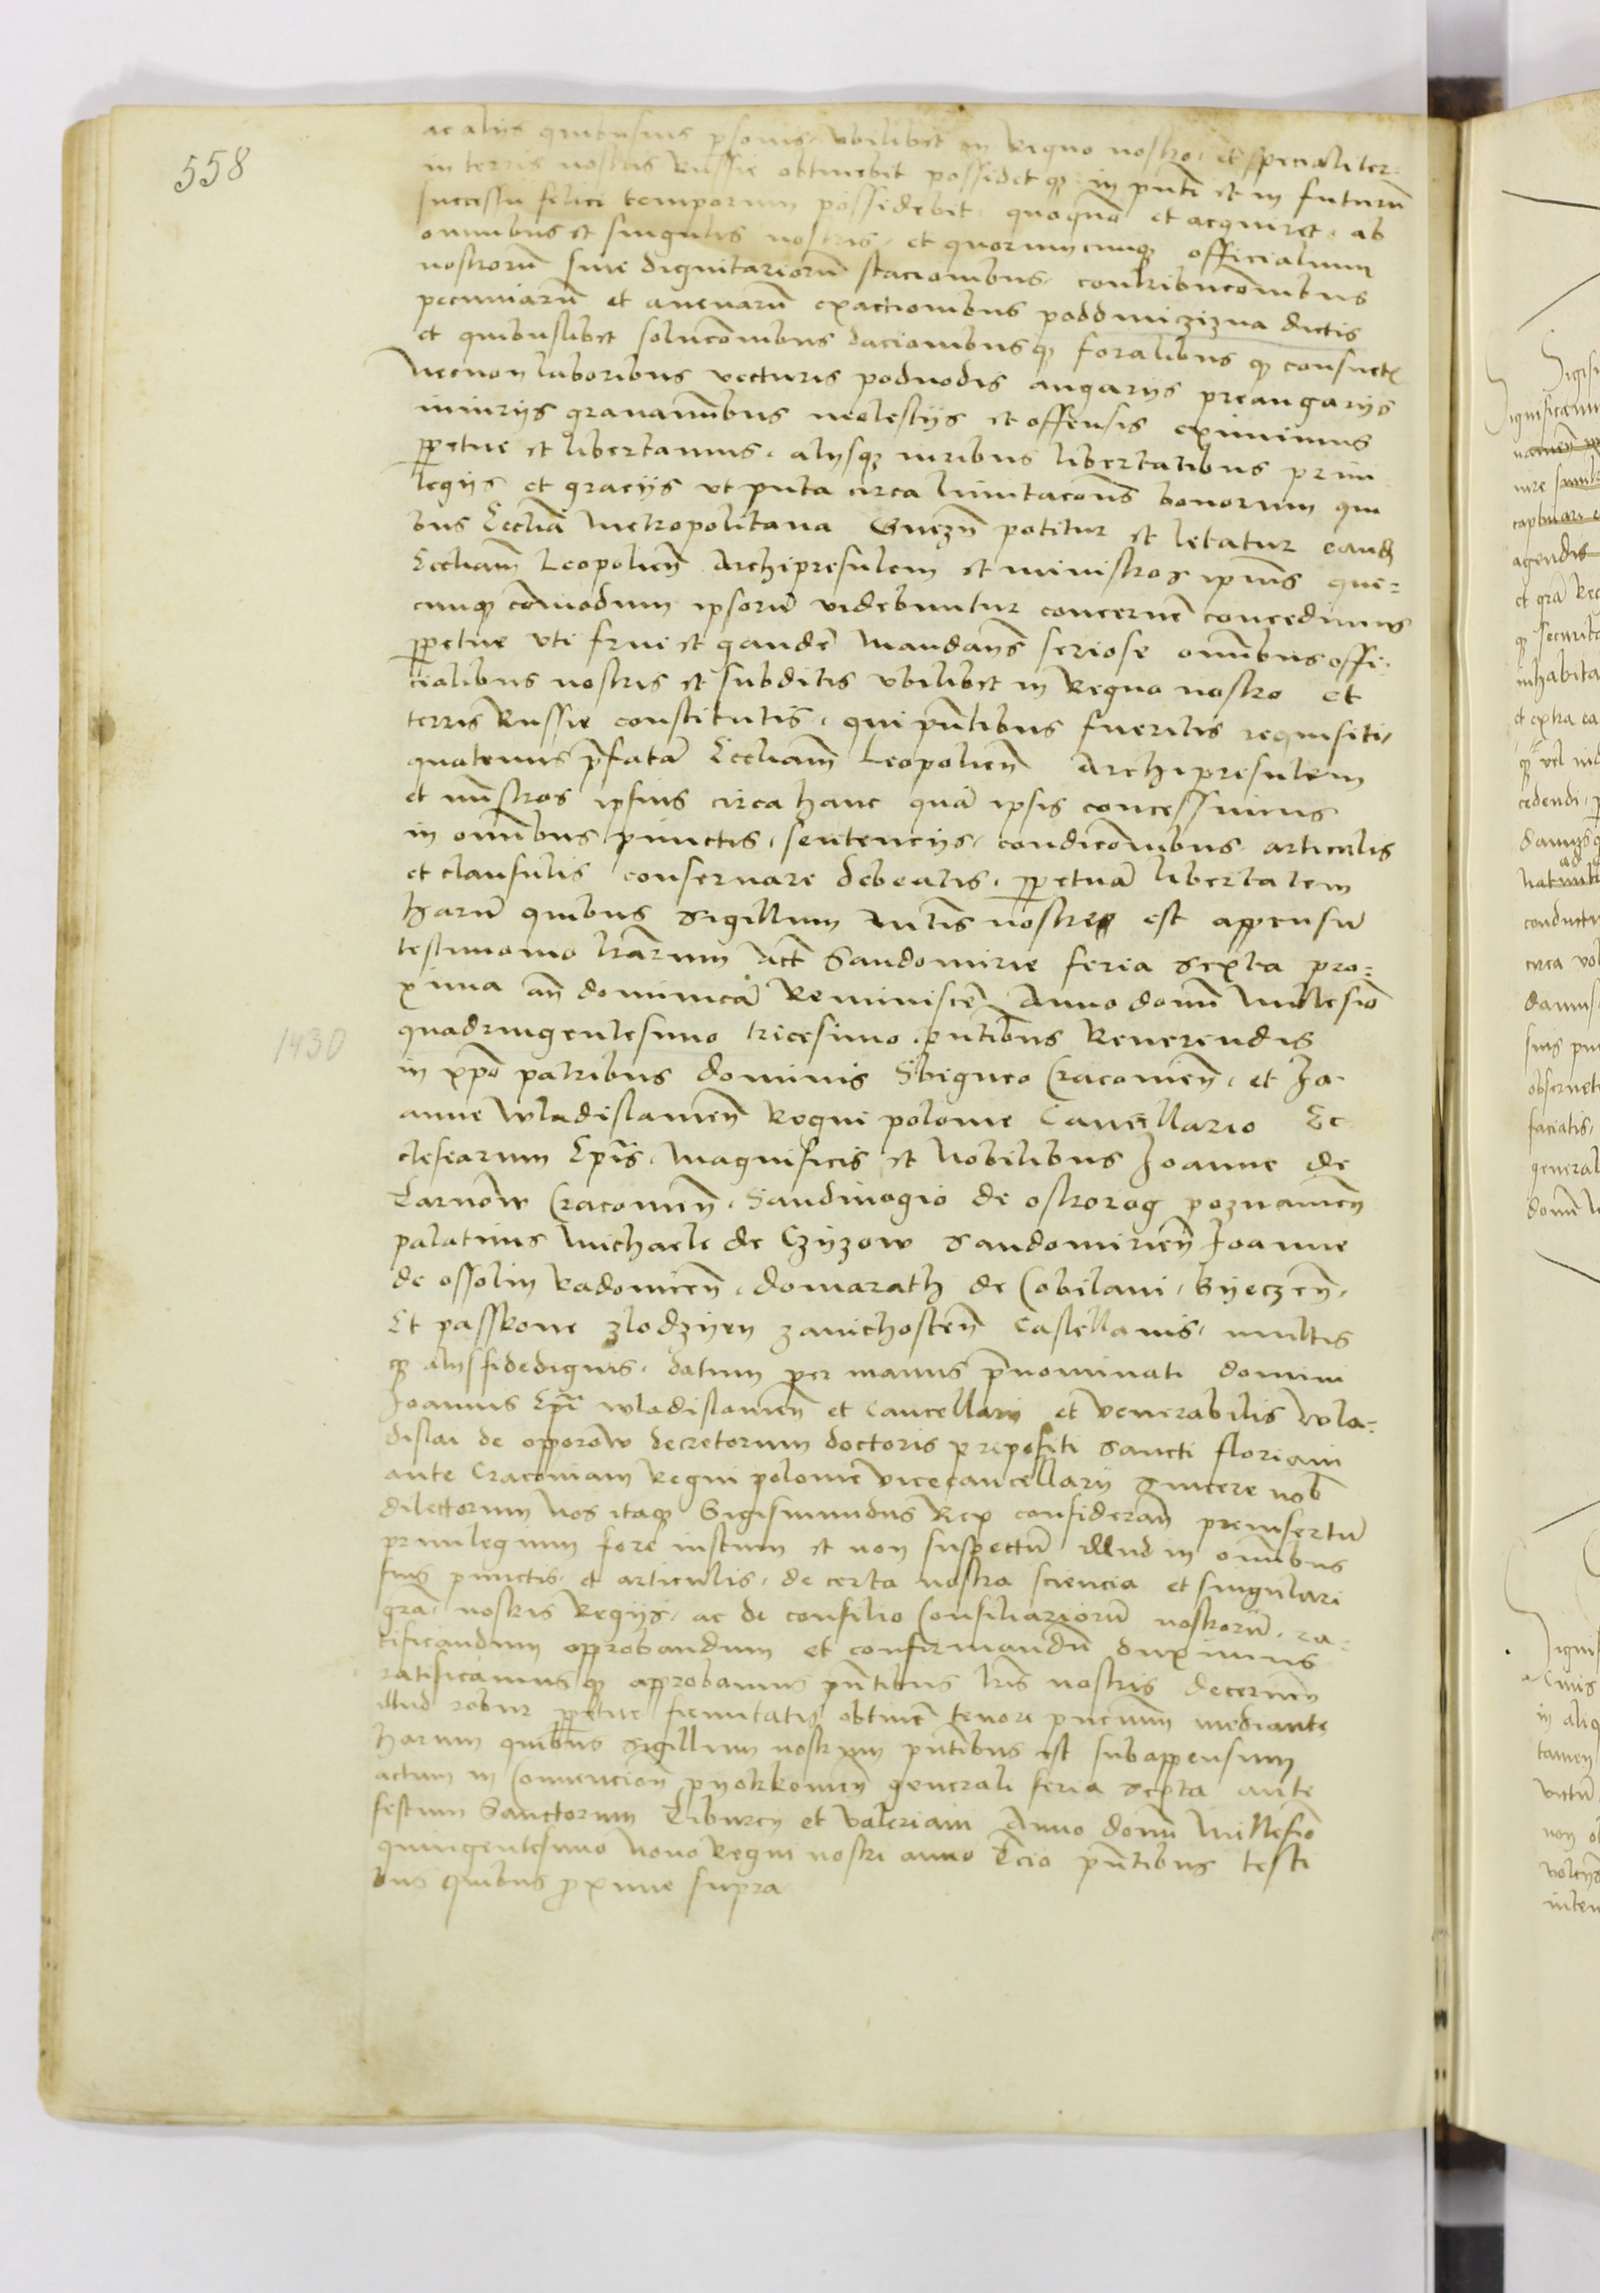 558
ac alijs quibusuis psonis, vbilibet in Regno nostro, et specialiter
in terris nostris Russie obtinebit possidet qꝫ in pnti et in futurũ
successu felici temporum possidebit, quoquõ et acquiret, ab
omnibus et singulis nostris, et quorumcunqꝫ officialium
nostrorũ siue dignitariorũ stacionibus, contribucõnibus
pecuniarũ et auenarũ exactionibus poddmiczizna dictis
et quibuslibet solucõnibus dacionibusqꝫ foralibus qꝫ consuet
Necnon laboribus vecturis podwodis angarijs preangarijs
iniurijs grauaminibus molestijs et offensis eximimus
ppetue et libertamus, alijsqꝫ iuribus libertatibus priui
legijs et gracijs vt puta circa limitacõns bonorum qui
bus Ecclia Metropolitana Gnezñ potitur et letatur eand
Eccliam Leopolieñ Archipresulem et ministros ipius que-
cunqꝫ cõmodum ipsorũ videbuntur concerneñ concedimus
ppetue vti frui et gaudeñ Mandañs seriose omibus offi-
cialibus nostris et subditis vbilibet in Regno nostro et
terris Russie constitutis, qui pntibus fueritis requisiti,
quatenus pfatã Eccliam Leopolieñ Archipresulem
et mnistros ipsius circa hanc quã ipsis concessimus
in omibus punctis, sentencijs, condicõnibus articulis
et clausulis conseruare debeatis, ppetuã libertatem
Harũ quibus sigillum mtis nostre est appensũ
testimonio lrarum Act Sandomirie feria sexta pro-
xima añ dominicã Reminisceñ Anno domi Millesio
1430
quadringentesimo tricesimo, pntibus Reuerendis
in xpo patribus dominis Sbigneo Cracouieñ, et Jo-
anne Wladislauieñ Regni polonie Cancellario Ec
clesiarum Epis, Magnificis et Nobilibus Joanne de
Tarnow Cracouieñ, Sandiuogio de ostrorog poznanieñ
palatinis Michaele de Czyzow Sandomirieñ Joanne
de ossolin Radomieñ, Domarath de Cobilani, Byeczeñ,
Et passkone zlodzyey zauichosteñ Castellanis, multis
qꝫ alijs fidedignis, datum per manus pnominati domini
Joannis Epi Wladislauieñ et Cancellarij et Venerabilis Wla-
dislai de opporow decretorum doctoris prepositi Sancti floriani
ante Cracouiam Regni polonie Vicecancellarij sincere nob
dilectorum Nos itaqꝫ Sigismundus Rex considerañ preinsertũ
priuilegium fore iustum et non suspectũ illud in omibus
suis punctis, et articulis, de certa nostra sciencia et singulari
gra, nostris Regijs, ac de consilio Consiliariorũ nostrorũ, ra-
tificandum approbandum et confirmandũ duximus
ratificamusqꝫ approbamus pntibus lris nostris decerneñ
illud robur ppetue firmitatis obtineñ tenore pncium mediante
harum quibus sigillum nostrum pntibus est subappensum
actum in Conuencioñ pyotrkouieñ generali feria sexta ante
festum Sanctorum Tiburcij et Valeriani Anno domi Millesio
quingentesimo Nono Regni nostri anno tcio pntibus testi
bus quibus proxime supra